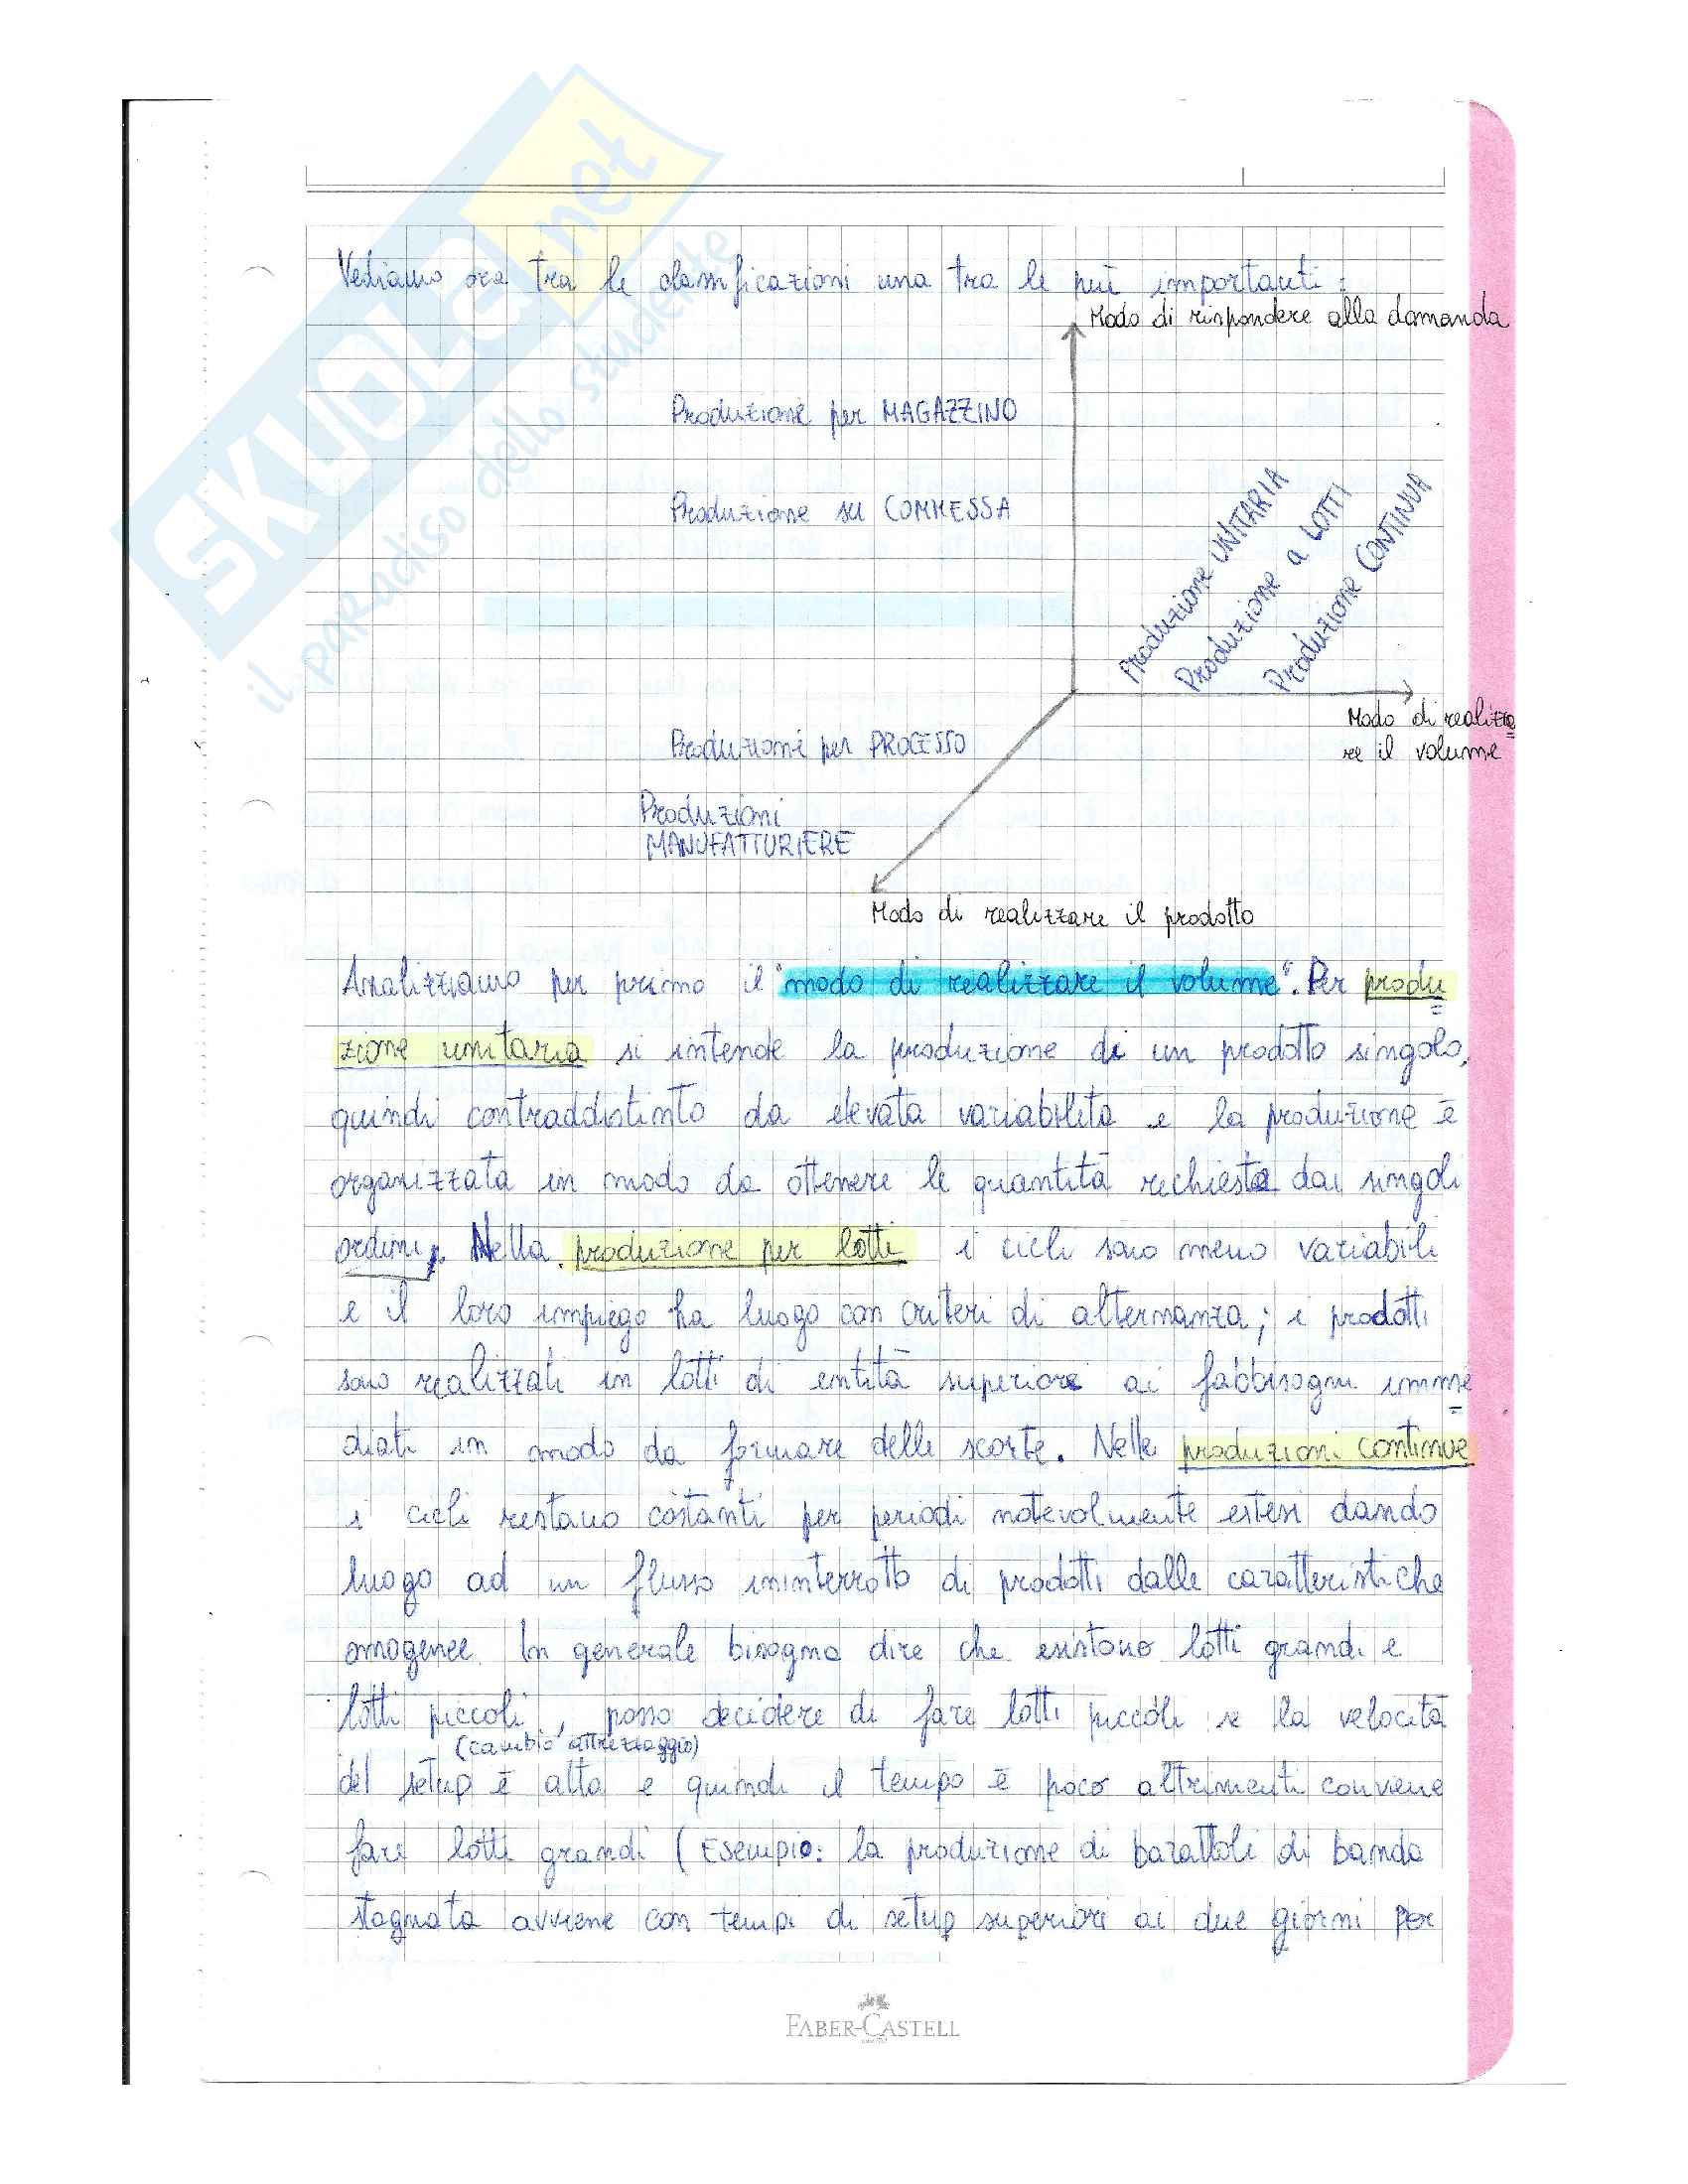 SKUOLA.net
il paradiso dello studente
Vediamo ora tra le classificazioni una tra le più importanti:
Modo di rispondere alla domanda
Produzione per MAGAZZINO
Produzione su COMMESSA
Produzione UNITARIA
Produzione a LOTTI
Produzione CONTINUA
Modo di realizza
re il volume
Produzioni per PROCESSO
Produzioni
MANUFATTURIERE
Modo di realizzare il prodotto
Analizziamo per primo il "modo di realizzare il volume". Per produ
zione unitaria si intende la produzione di un prodotto singolo,
quindi contraddistinto da elevata variabilità e la produzione è
organizzata in modo da ottenere le quantità richieste dai singoli
ordini. Nella produzione per lotti i cicli sono meno variabili
e il loro impiego ha luogo con criteri di alternanza; i prodotti
sono realizzati in lotti di entità superiore ai fabbisogni imme
diati in modo da formare delle scorte. Nelle produzioni continue
i cicli restano costanti per periodi notevolmente estesi dando
luogo ad un flusso ininterrotto di prodotti dalle caratteristiche
omogenee. In generale bisogna dire che esistono lotti grandi e
lotti piccoli, posso decidere di fare lotti piccoli se la velocità
(cambio attrezzaggio)
del setup è alta e quindi il tempo è poco altrimenti conviene
fare lotti grandi (Esempio: la produzione di barattoli di banda
stagnata avviene con tempi di setup superiori ai due giorni per
FABER-CASTELL